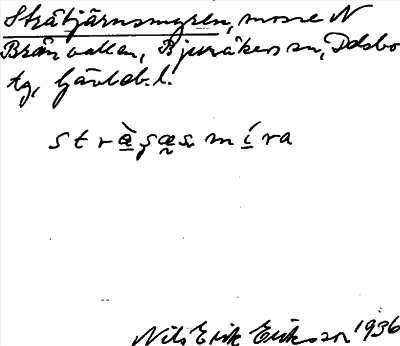 Stråtjärnsmyren, mosse N
Brånvallen, Bjuråkers sn, Delsbo
tg, Gävleb. l.
strå̀ʒæsmíra
Nils Erik Eriksson 1936